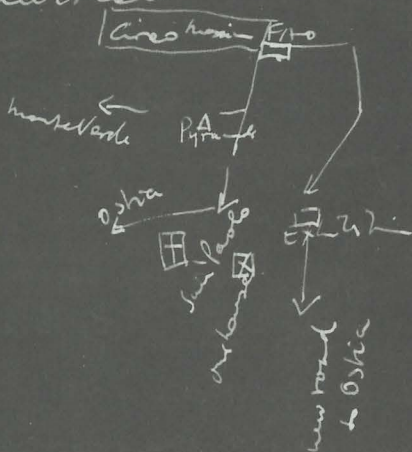 Circo Massimo
FAO
Monte Verde
Pyramide
Ostia
San Paolo
our house
new road
to Ostia